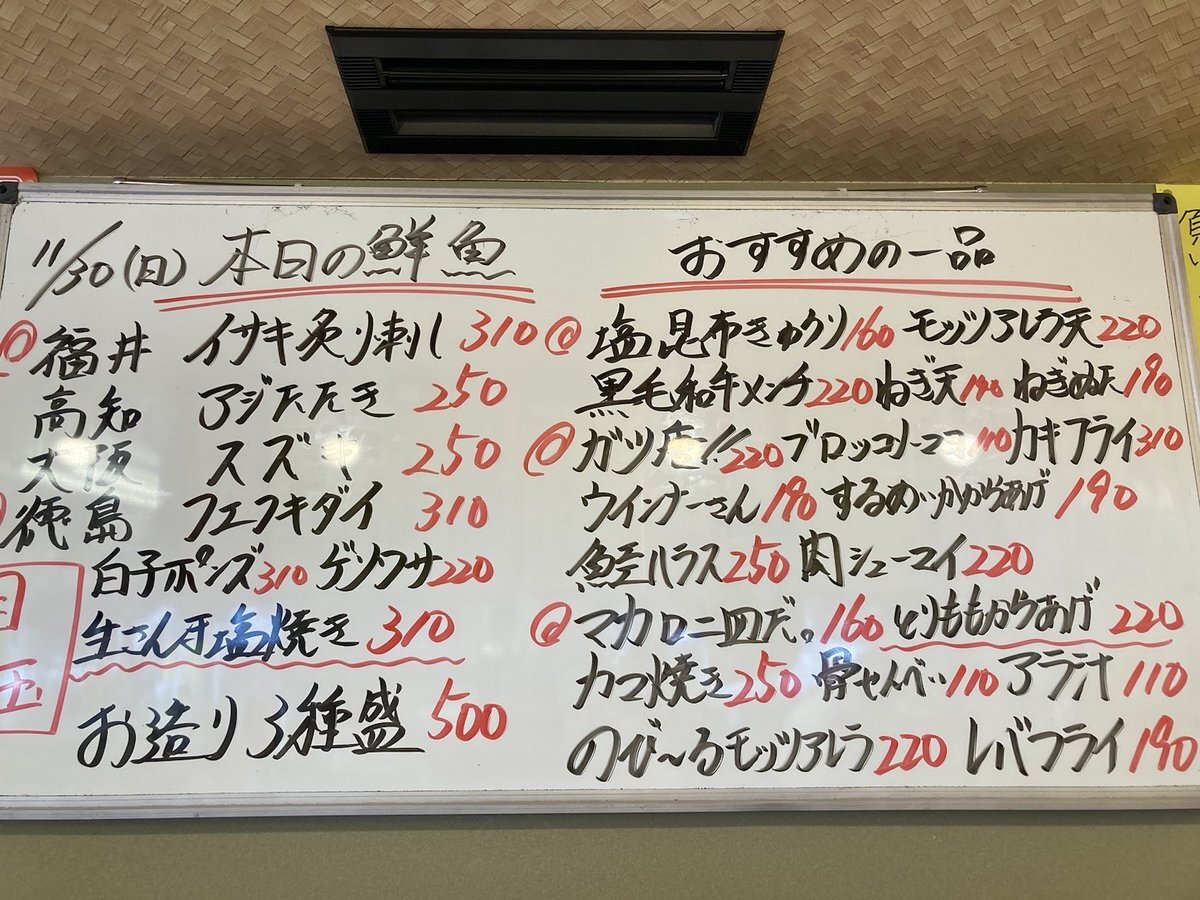 11/30(日) 本日の鮮魚
@ 福井 イサキ炙り刺し 310
高知 アジたたき 250
大阪 スズキ 250
徳島 フエフキダイ 310
白子ポンズ 310 ゲソワサ 220
生さんま塩焼き 310
お造り3種盛 500
おすすめの一品
@ 塩昆布きゅうり 160 モッツアレラ天 220
黒毛和牛メンチ 220 ねぎ天 190 ねぎぬた 190
@ ガツ!! 220 ブロッコリーマヨ カキフライ 310
ウインナーさん 190 するめいかからあげ 190
鮭ハラス 250 肉シューマイ 220
@ マカロニ皿だ。160 とりももからあげ 220
カマ焼き 250 骨せんべい 110 アラ汁 110
のび〜るモッツアレラ 220 レバフライ 190